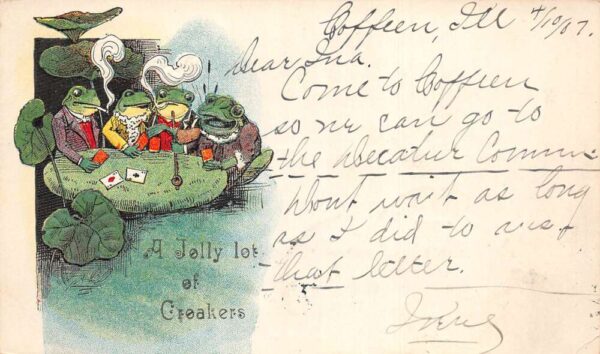 Coffeen, Ill 4/10/07.
Dear Ina.
Come to Coffeen
so we can go to
the Decatur Comm
Dont wait as long
as I did to
that letter.
Irene
A Jolly lot
of
Croakers